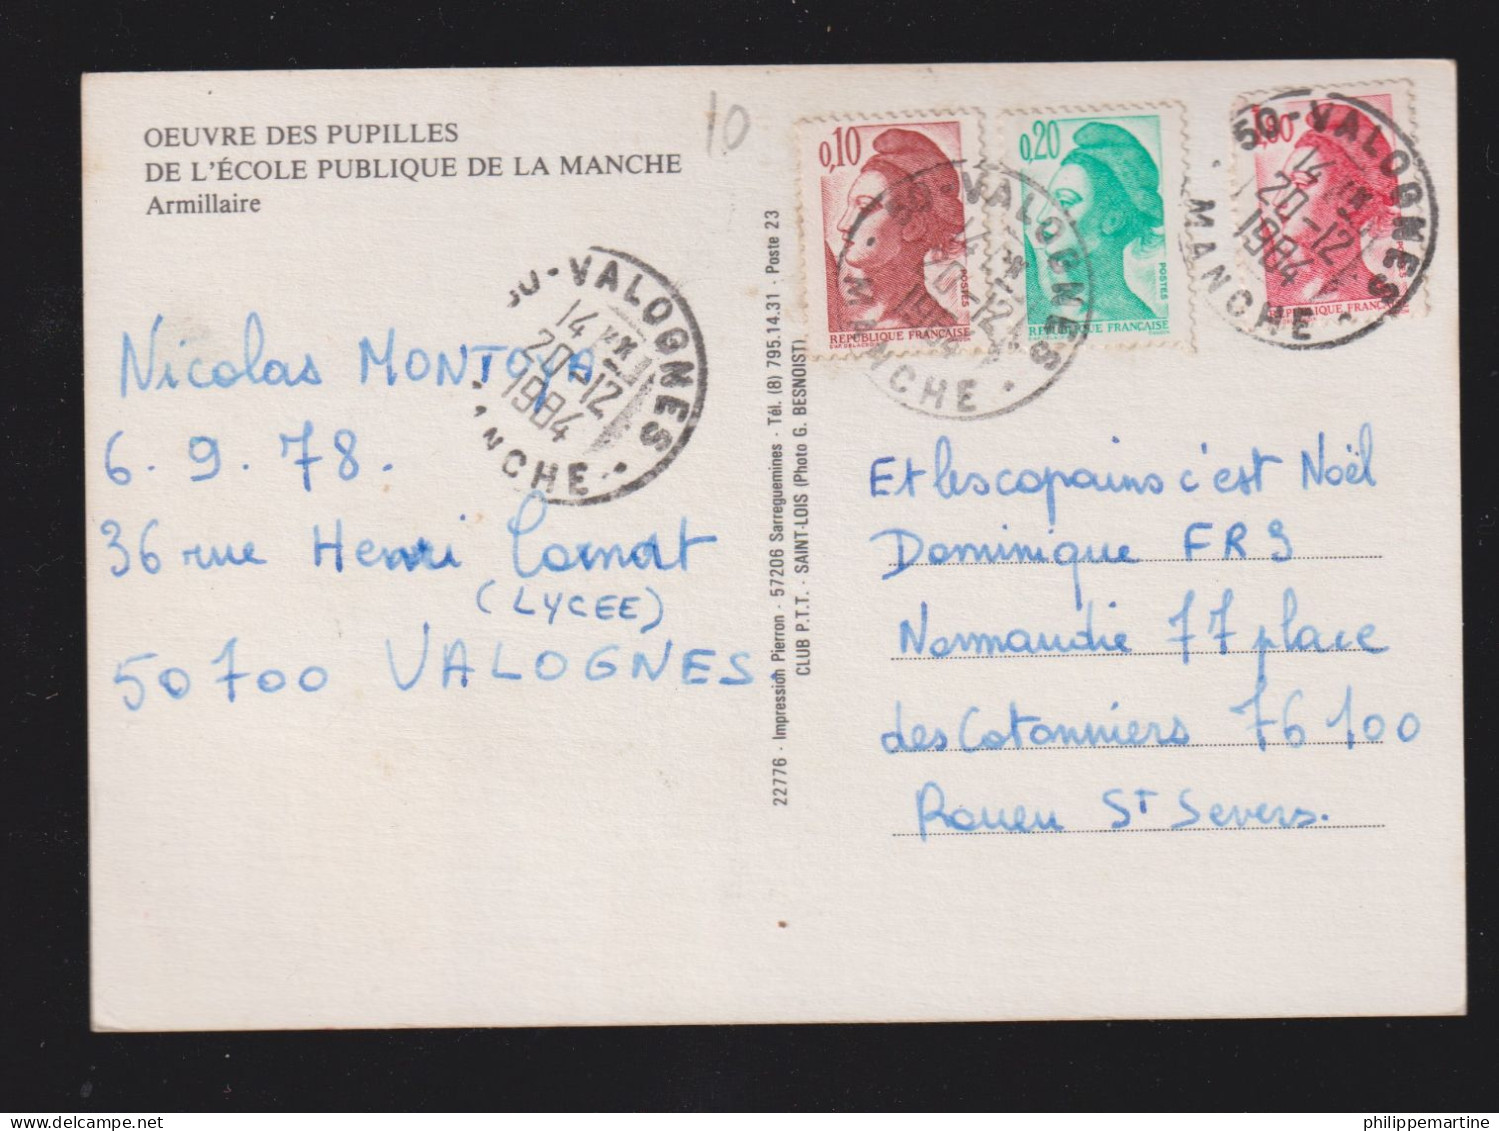 OEUVRE DES PUPILLES
DE L'ÉCOLE PUBLIQUE DE LA MANCHE
Armillaire
10
0,10
REPUBLIQUE FRANÇAISE
POSTES
0,20
REPUBLIQUE FRANÇAISE
POSTES
REPUBLIQUE FRANÇAISE
50-VALOGNES
14 H
20-12
1984
MANCHE
50-VALOGNES
14 H
20-12
MANCHE
VALOGNES
14 H
20-12
1984
Nicolas MONTOYA
6.9.78.
36 rue Henri Cornat
(LYCEE)
50700 VALOGNES.
22776 - Impression Pierron - 57206 Sarreguemines - Tél. (8) 795.14.31 . Poste 23
CLUB P.T.T. - SAINT-LOIS (Photo G. BESNOIST)
Et les copains c'est Noël
Dominique FR3
Normandie 77 place
des Cotonniers 76100
Rouen ST Severs.
philippemartine